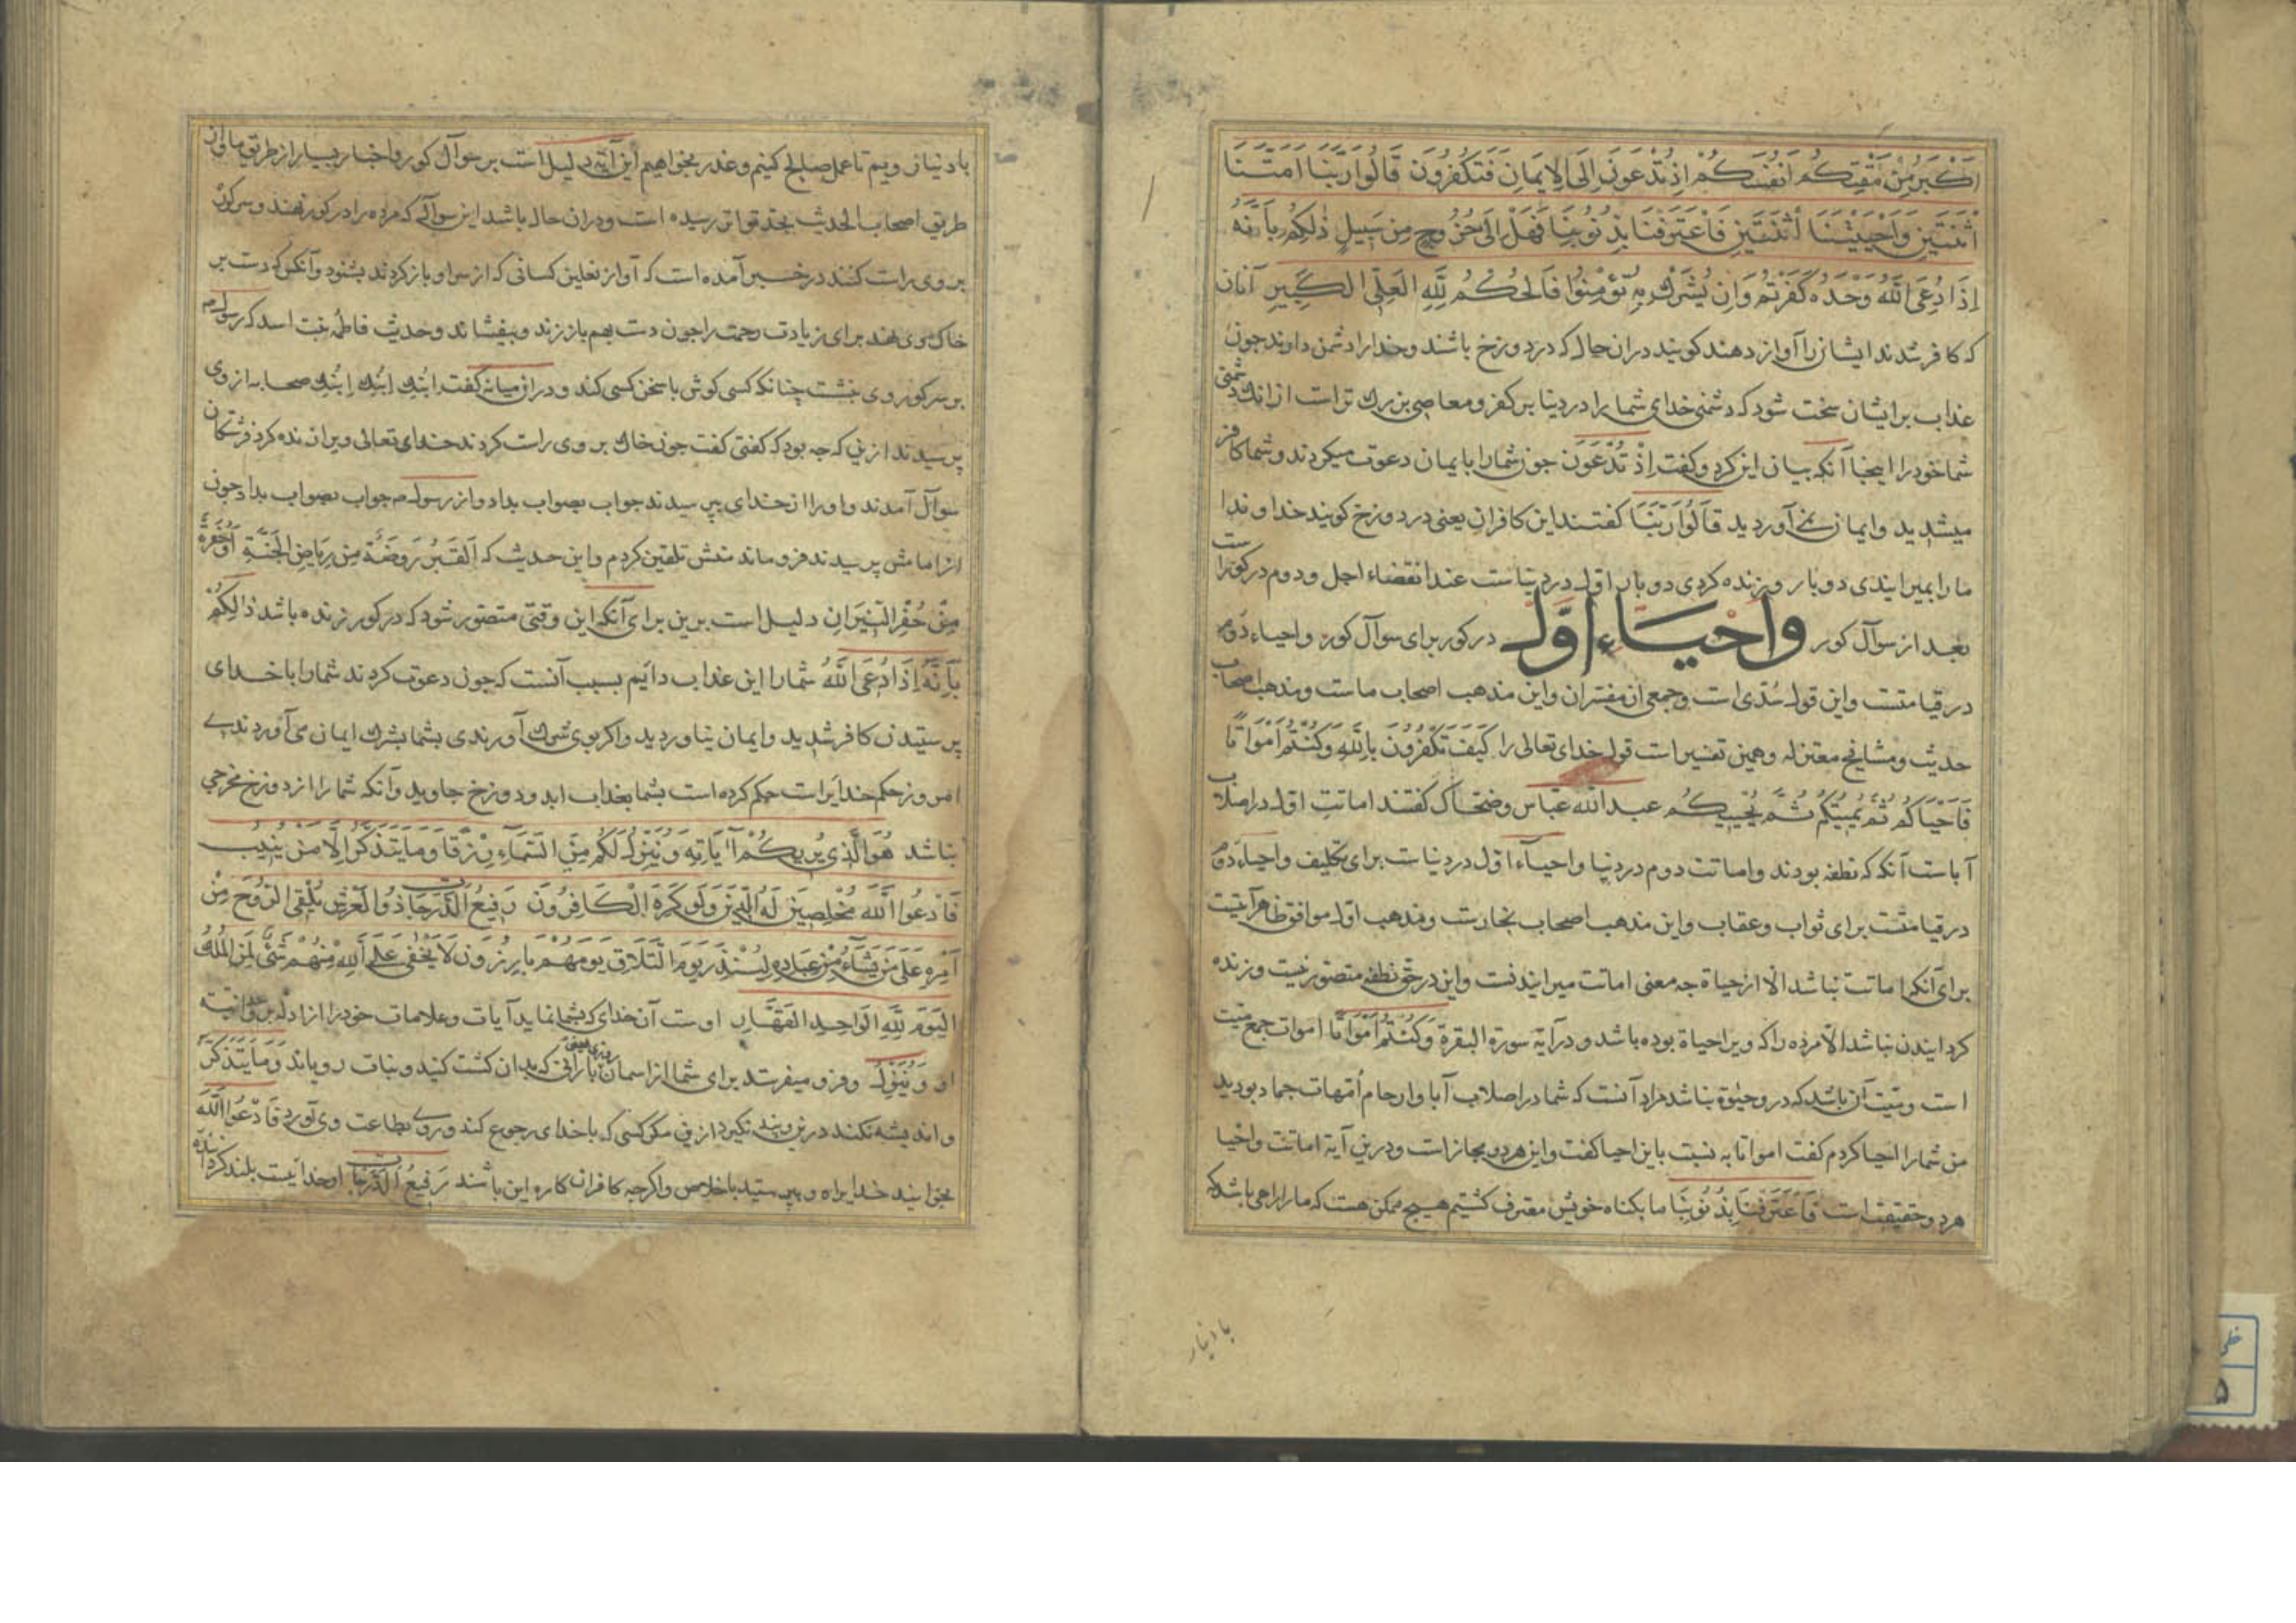 اَكْبَرُ مِنْ مَقْتِكُمْ اَنْفُسَكُمْ اِذْ تُدْعَوْنَ اِلَى الْاِيمَانِ فَتَكْفُرُونَ قَالُوا رَبَّنَا اَمَتَّنَا
اثْنَتَيْنِ وَاَحْيَيْتَنَا اثْنَتَيْنِ فَاعْتَرَفْنَا بِذُنُوبِنَا فَهَلْ اِلَى خُرُوجٍ مِنْ سَبِيلٍ ذٰلِكُمْ بِاَنَّهُ
اِذَا دُعِيَ اللَّهُ وَحْدَهُ كَفَرْتُمْ وَاِنْ يُشْرَكْ بِهِ تُؤْمِنُوا فَالْحُكْمُ لِلَّهِ الْعَلِيِّ الْكَبِيرِ آنان
که کافر شدند ایشان را آواز دهند کویند دران حال که در دوزخ باشند و خود را دشمن دارند جون
عذاب بر ایشان سخت شود که دشمنی خدای شما را در دنیا بر کفر و معاصی بزرك تراست از انك دشمنی
شما خود را اینجا آنکه بیان این کرد و کفت اِذْ تُدْعَوْنَ جون شما را بایمان دعوت میکردند و شما کافر
میشدید و ایمان نمی آوردید قَالُوا رَبَّنَا کفتند این کافران یعنی در دوزخ کویند خداوندا
ما را بمیرایندی دوبار و زنده کردی دوبار اول در دنیاست عند انقضاء اجل و دوم در کوراست
بعد از سوآل کور واحیاء اوّل در کور برای سوآل کور و احیاء دوم
در قیامتست و این قول سُدّی است و جمعی از مفسران و این مذهب اصحاب ماست و مذهب اصحاب
حدیث و مشایخ معتزله و همین تفسیر است قول خدای تعالی را كَيْفَ تَكْفُرُونَ بِاللَّهِ وَكُنْتُمْ اَمْوَاتًا
فَاَحْيَاكُمْ ثُمَّ يُمِيتُكُمْ ثُمَّ يُحْيِيكُمْ عبد الله عباس و ضحّاک کفتند اماتت اول در اصلاب
آباست آنکه که نطفه بودند و اماتت دوم در دنیا و احیآء اول در دنیاست برای تکلیف و احیاء دوم
در قیامتست برای ثواب و عقاب و این مذهب اصحاب نجارست و مذهب اول موافق ظاهر آیتست
برای آنکه اماتت نباشد الّا از حیاة جه معنی اماتت میرایندنست و این در حق نطفه متصور نیست و زنده
کردایندن نباشد الّا مرده را که ویرا حیاة بوده باشد و در آیه سورة البقرة وَكُنْتُمْ اَمْوَاتًا اموات جمع میّت
است و میّت آن باشد که در و حیوة نباشد مراد آنست که شما در اصلاب آبا و ارحام اُمّهات جماد بودید
من شما را احیا کردم کفت امواتا به نسبت با این احیا کفت و این هر دو مجاز است و درین آیة اماتت و احیا
هر دو حقیقت است فَاعْتَرَفْنَا بِذُنُوبِنَا ما بکناه خویش معترف کشتیم هیچ ممکن هست که ما را راهی باشد که
با دنیار
با دنیا رویم تا عمل صالح کنیم و عذر بخواهیم این آیه دلیل است بر سوآل کور و اخبار بسیار از طریق ما و از
طریق اصحاب الحدیث بحد تواتر رسیده است و دران حال باشد این سوآل که مرده را در کور نهند و سر کور
بر وی راست کنند در خبر آمده است که آواز نعلین کسانی که از سر او باز کردند بشنود و آنکس که دست بر
خاک وی نهد برای زیادت رحمت را جون دست بهم باز زند و بیفشاند و حدیث فاطمه بنت اسد که رسول م
بر سر کور وی بنشست چنانکه کسی کوش با سخن کسی کند و دران میانه کفت اِبْنُكِ اِبْنُكِ اِبْنُكِ صحابه از وی
پرسیدند ازین که جه بود که کفتی کفت جون خاك بر وی راست کردند خدای تعالی ویرا زنده کرد فرشتکان
سوآل آمدند و او را از خدای بپرسیدند جواب بصواب بداد و از رسول م جواب بصواب بداد جون
از امامش پرسیدند فرو ماند منش تلقین کردم و این حدیث که اَلْقَبْرُ رَوْضَةٌ مِنْ رِيَاضِ الْجَنَّةِ اَوْ حُفْرَةٌ
مِنْ حُفَرِ النِّيرَانِ دلیل است برین برای آنکه این وقتی متصور شود که در کور زنده باشد ذَالِكُمْ
بِاَنَّهُ اِذَا دُعِيَ اللَّهُ شما را این عذاب دایم بسبب آنست که جون دعوت کردند شما را با خدای
پرستیدن کافر شدید و ایمان نیاوردید و اکر بوی شرك آورندی بشما بشرك ایمان می آوردندے
امروز حکم خدایراست حکم کرده است بشما بعذاب ابد و دوزخ جاوید و آنکه شما را از دوزخ مخرجی
نباشد هُوَ الَّذِي يُرِيكُمْ آيَاتِهِ وَيُنَزِّلُ لَكُمْ مِنَ السَّمَاءِ رِزْقًا وَمَا يَتَذَكَّرُ اِلَّا مَنْ يُنِيبُ
فَادْعُوا اللَّهَ مُخْلِصِينَ لَهُ الدِّينَ وَلَوْ كَرِهَ الْكَافِرُونَ رَفِيعُ الدَّرَجَاتِ ذُو الْعَرْشِ يُلْقِي الرُّوحَ مِنْ
اَمْرِهِ عَلَى مَنْ يَشَاءُ مِنْ عِبَادِهِ لِيُنْذِرَ يَوْمَ التَّلَاقِ يَوْمَ هُمْ بَارِزُونَ لَا يَخْفَى عَلَى اللَّهِ مِنْهُمْ شَيْءٌ لِمَنِ الْمُلْكُ
الْيَوْمَ لِلَّهِ الْوَاحِدِ الْقَهَّارِ اوست آن خدای که بشما نماید آیات و علامات خود را از ادله بر وحدانیت
او وَيُنَزِّلُ و فرو میفرستد برای شما از اسمان روزی یعنی بارانی که بدان کشت کنید و نبات رویاند وَمَا يَتَذَكَّرُ
و اندیشه نکند درین و پند نکیرد ازین مکر کسی که با خدای رجوع کند و روے بطاعت وی آورد فَادْعُوا اللَّهَ
بخوانید خدایرا و بپرستید باخلاص و اکرجه کافران کاره این باشند رَفِيعُ الدَّرَجَاتِ او خدائیست بلند کرداننده